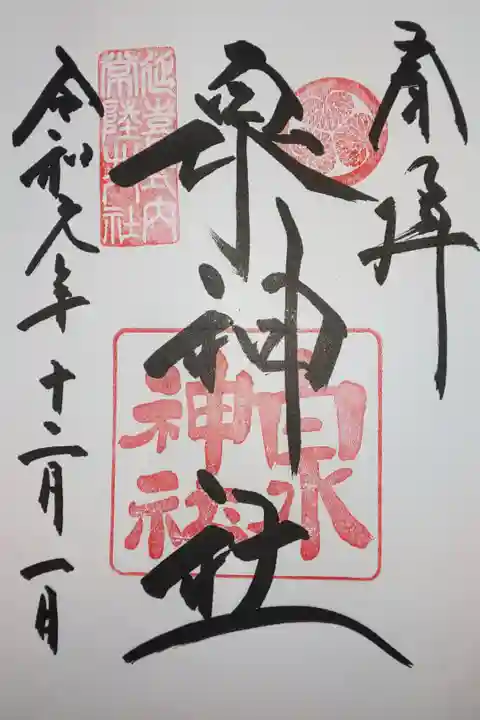 奉拝
泉神社
泉
神社
延喜式内
常陸
社
令和元年十二月一日